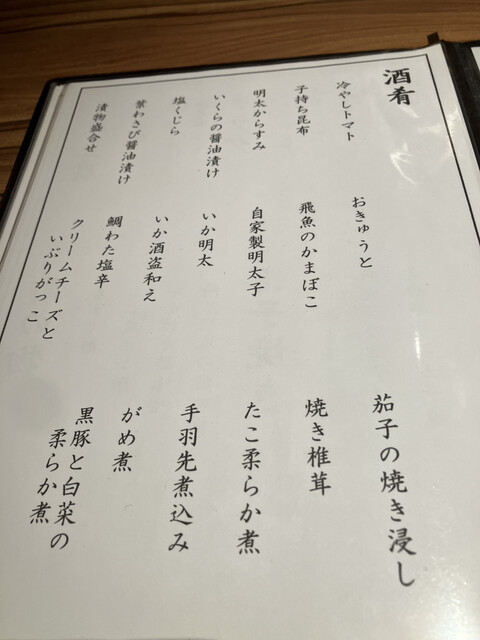 酒肴
冷やしトマト
子持ち昆布
明太からすみ
いくらの醤油漬け
塩くじら
葉わさび醤油漬け
漬物盛合せ
おきゅうと
飛魚のかまぼこ
自家製明太子
いか明太
いか酒盗和え
鯛わた塩辛
クリームチーズと
いぶりがっこ
茄子の焼き浸し
焼き椎茸
たこ柔らか煮
手羽先煮込み
がめ煮
黒豚と白菜の
柔らか煮